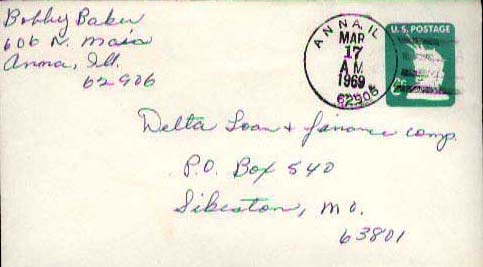 Bobby Baker
606 N. Main
Anna, Ill.
62906
ANNA, IL
MAR
17
AM
1969
62906
U.S. POSTAGE
Delta Loan & finance comp.
P.O. Box 540
Sikeston, Mo.
63801